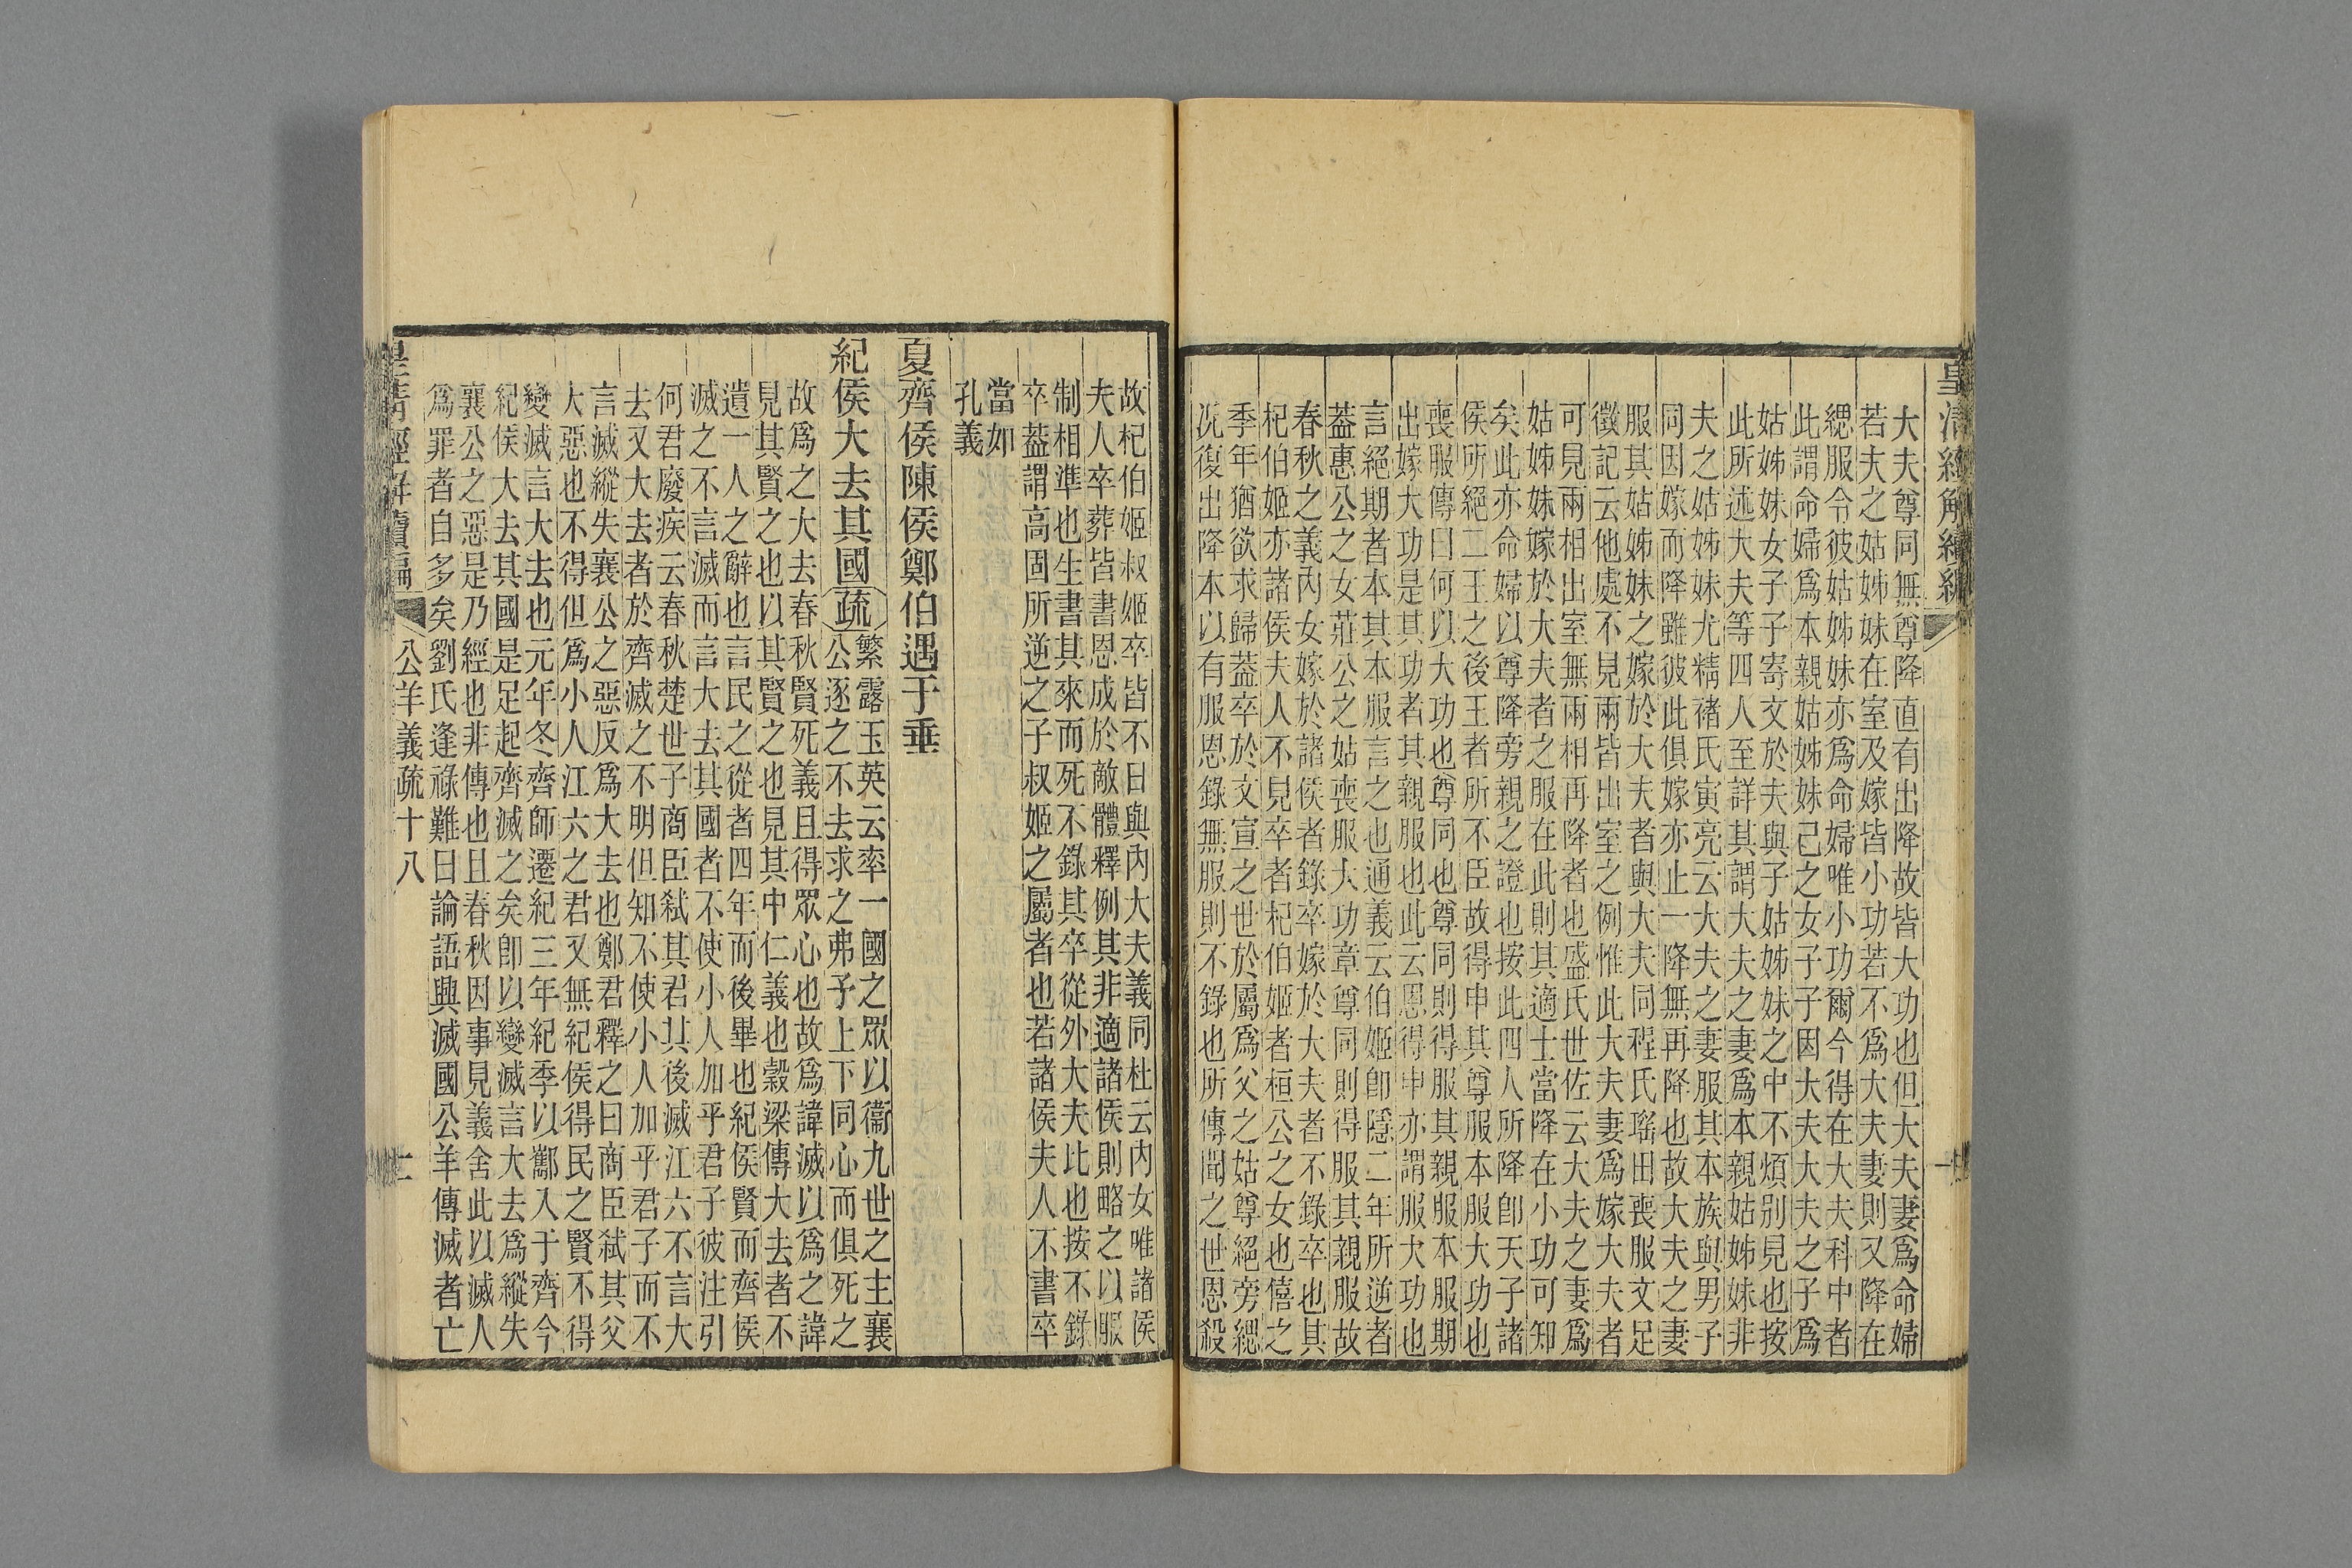 皇清經解續編
大夫尊同無尊降直有出降故皆大功也但大夫妻爲命婦
若夫之姑姊妹在室及嫁皆小功若不爲大夫妻則又降在
緦服令彼姑姊妹亦爲命婦唯小功爾今得在大夫科中者
此謂命婦爲本親姑姊妹己之女子子因大夫大夫之子爲
姑姊妹女子子寄文於夫與子姑姊妹之中不煩別見也按
此所述大夫等四人至詳其謂大夫之妻爲本親姑姊妹非
夫之姑姊妹尤精褚氏寅亮云大夫之妻服其本族與男子
同因嫁而降雖彼此俱嫁亦止一降無再降也故大夫之妻
服其姑姊妹之嫁於大夫者與大夫同程氏瑤田喪服文足
徵記云他處不見兩皆出室之例惟此大夫妻爲嫁大夫者
可見兩相出室無兩相再降者也盛氏世佐云大夫之妻爲
姑姊妹嫁於大夫者之服在此則其適士當降在小功可知
矣此亦命婦以尊降旁親之證也按此四人所降卽天子諸
侯所絕二王之後王者所不臣故得申其尊服本服大功也
喪服傳曰何以大功也尊同也尊同則得服其親服本服期
出嫁大功是其功者其親服也此云恩得申亦謂服大功也
言絕期者本其本服言之也通義云伯姬卽隱二年所逆者
葢惠公之女莊公之姑喪服大功章尊同則得服其親服故
春秋之義內女嫁於諸侯者錄卒嫁於大夫者不錄卒也其
杞伯姬亦諸侯夫人不見卒者杞伯姬者桓公之女也僖之
季年猶欲求歸葢卒於文宣之世於屬爲父之姑尊絕旁緦
況復出降本以有服恩錄無服則不錄也所傳聞之世恩殺
故杞伯姬叔姬卒皆不日與內大夫義同杜云內女唯諸侯
夫人卒葬皆書恩成於敵體釋例其非適諸侯則略之以服
制相準也生書其來而死不錄其卒從外大夫比也按不錄
卒葢謂高固所逆之子叔姬之屬者也若諸侯夫人不書卒
當如
孔義
夏齊侯陳侯鄭伯遇于垂
紀侯大去其國疏繁露玉英云率一國之眾以衞九世之主襄
公逐之不去求之弗予上下同心而俱死之
故爲之大去春秋賢死義且得眾心也故爲諱滅以爲之諱
見其賢之也以其賢之也見其中仁義也穀梁傳大去者不
遺一人之辭也言民之從者四年而後畢也紀侯賢而齊侯
滅之不言滅而言大去其國者不使小人加乎君子彼注引
何君廢疾云春秋楚世子商臣弒其君其後滅江六不言大
去又大去者於齊滅之不明但知不使小人加乎君子而不
言滅縱失襄公之惡反爲大去也鄭君釋之曰商臣弒其父
大惡也不得但爲小人江六之君又無紀侯得民之賢不得
變滅言大去也元年冬齊師遷紀三年紀季以酅入于齊今
紀侯大去其國是足起齊滅之矣卽以變滅言大去爲縱失
襄公之惡是乃經也非傳也且春秋因事見義舍此以滅人
爲罪者自多矣劉氏逢祿難曰論語興滅國公羊傳滅者亡
皇清經解續編 公羊義疏十八